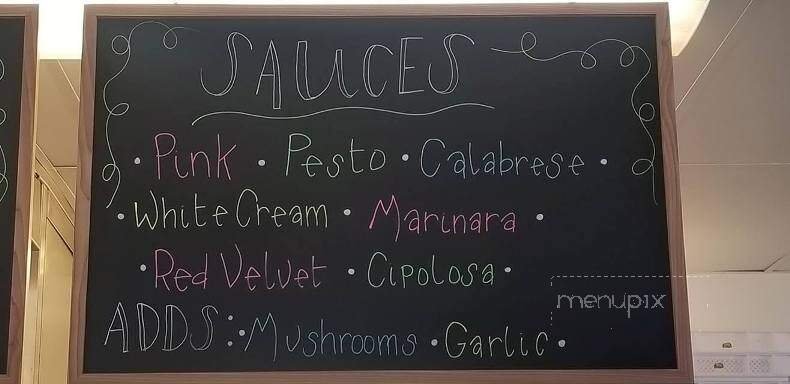 SAUCES
• Pink • Pesto • Calabrese •
• White Cream • Marinara •
• Red Velvet • Cipolosa •
ADDS: • Mushrooms • Garlic •
menupix